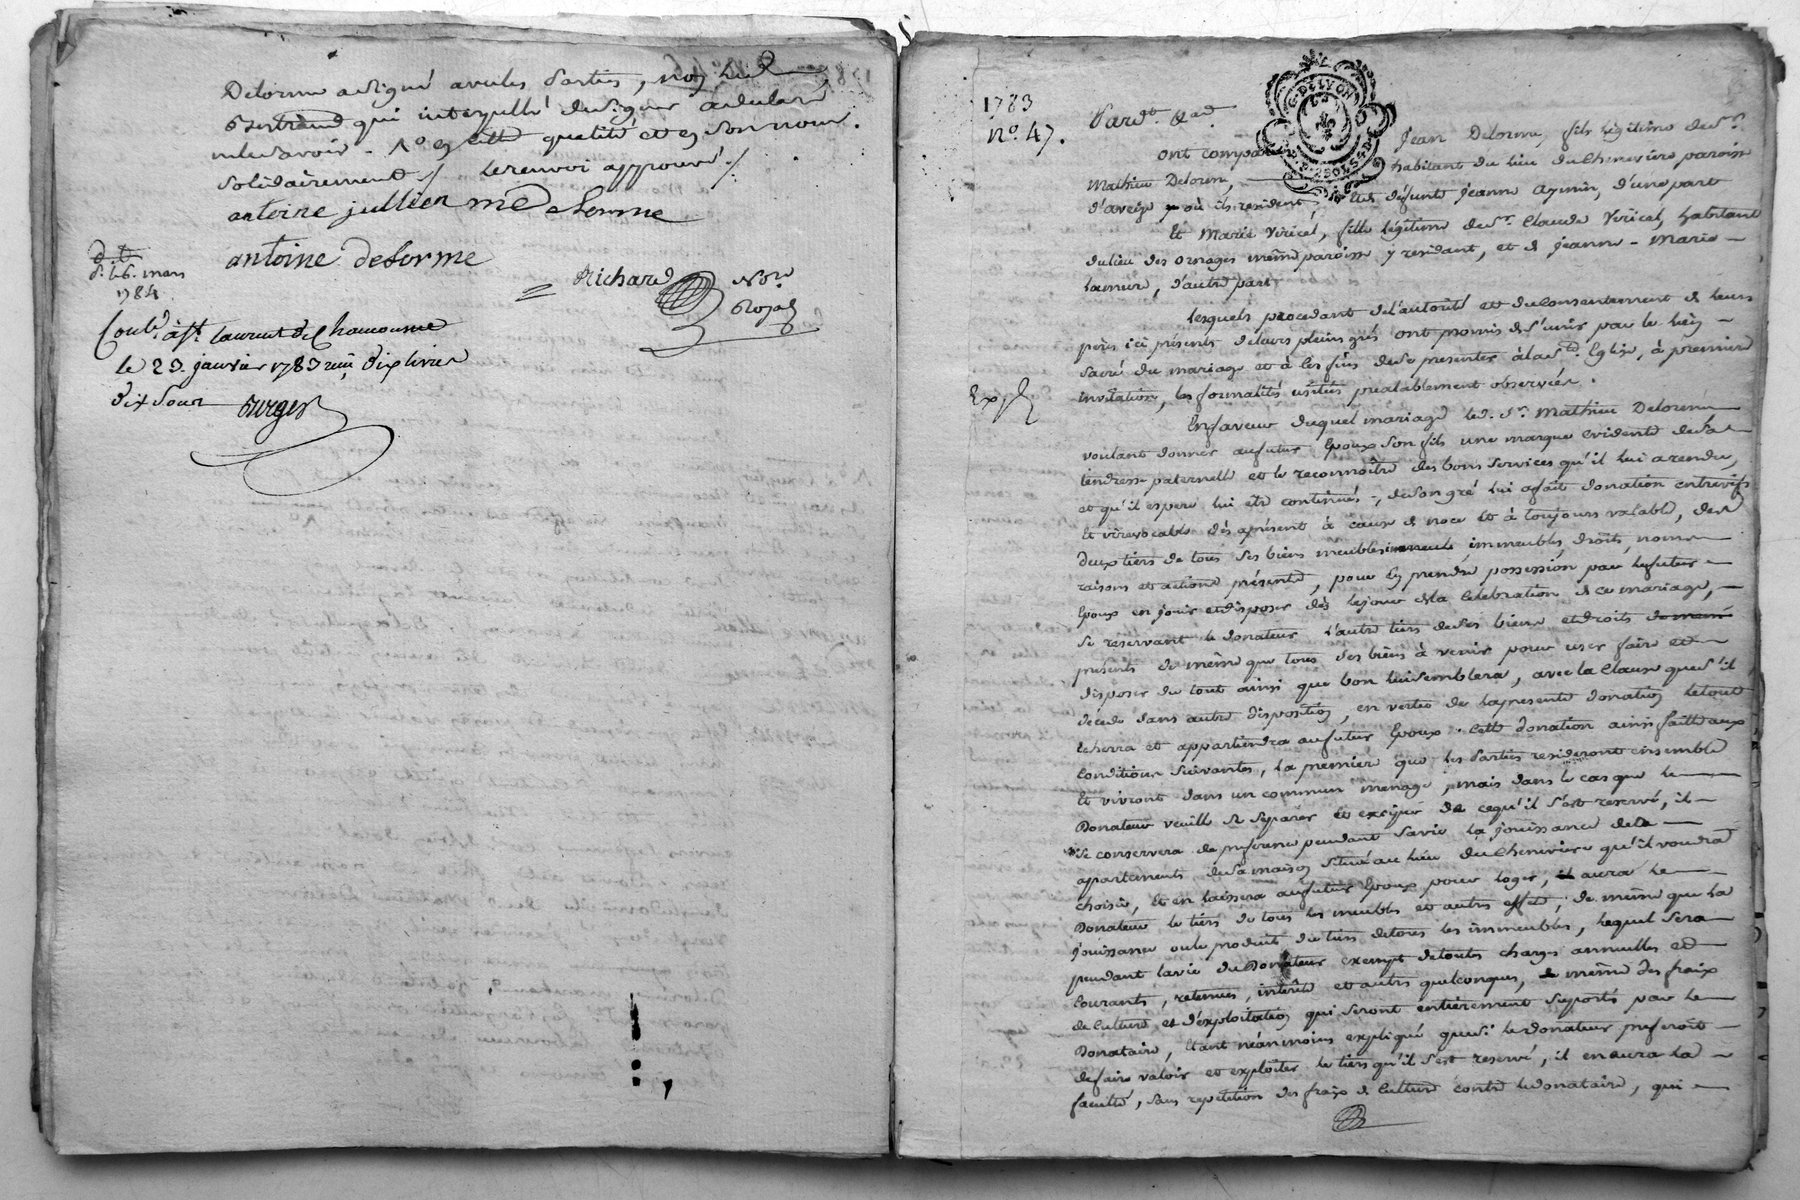 Delorme a signé avec les parties, non led.
Bertrand qui interpellé de signer a déclaré
ne le savoir. en cette qualité et en son nom.
solidairement // le renvoi approuvé //
antoine jullien m Delorme
antoine delorme
Richard No.re
Royal
d.t
d. 16. mars
1784.
Conlé à St. laurent de Chamousset
le 23 janvier 1783 reçu dix livres
dix sous
1783
nº. 47.
Pardt. &ad.
G. DE LYON
ont comparu Jean Delorme, fils légitime de Sr.
Mathieu Delorme, habitant du lieu du Cheneviere, paroisse
d'aveize où ils resident, et de défunte Jeanne Aymin, d'une part
Et Marie Viricel, fille légitime de Sr. Claude Viricel, habitant
du lieu des ornages même paroisse y residant, et de jeanne - Marie -
lamure, d'autre part.
Lesquels procedant de l'autorité et du Consentement de leurs
pères ici présents de leurs pleins grés ont promis de s'unir par le lien -
sacré du mariage et à ces fins de se presenter à la de. Eglise, à première
invitation, les formalités usitées préalablement observées.
Expé
En faveur duquel mariage led. Sr. Mathieu Delorme
voulant donner au futur Epoux son fils une marque evidente de sa
tendresse paternelle et le reconnoître des bons services qu'il lui a rendu,
et qu'il espere lui etre continués, de son gré lui a fait donation entrevifs
Et irrevocable dès aprésent à cause de noce et à toujours valable, des
deux tiers de tous ses biens meubles immeubles droits, noms
raisons et actions présents, pour en prendre possession par le futur -
Epoux en jouir et disposer dès le jour de la Celebration de ce mariage, -
se réservant le donateur l'autre tiers de ses biens et droits
présents de même que tous ses biens à venir pour user faire et
disposer du tout ainsi que bon lui semblera, avec la Clause que s'il
decede sans autre disposition, en vertu de la presente donation le tout
echerra et appartiendra au futur Epoux. Cette donation ainsi faitte aux
Conditions suivantes, la premiere que les Parties resideront ensemble
Et vivront dans un commun menage, mais dans le cas que le
Donateur veuille se séparer et exiger de ce qu'il s'est reservé, il -
se conservera de preference pendant sa vie la jouissance de la
apartements de sa maison située au lieu du Cheneviere qu'il voudra
choisir, Et en laissera au futur Epoux pour loger, il aura le
Donateur le tiers de tous les meubles et autres effets, de même que la
jouissance ou le produit du tiers de tous les immeubles, lequel sera
pendant la vie du Donateur exempt de toutes charges annuelles et
Courants, retenues, interêts et autres quelconques, de même des fraix
de Culture et d'exploitation qui seront entièrement suportés par le
Donataire, Etant néanmoins expliqué que si le donateur preferoit
de faire valoir et exploiter le tiers qu'il s'est reservé, il en aura la
faculté, sans repetition des fraix de Culture contre le donataire, qui